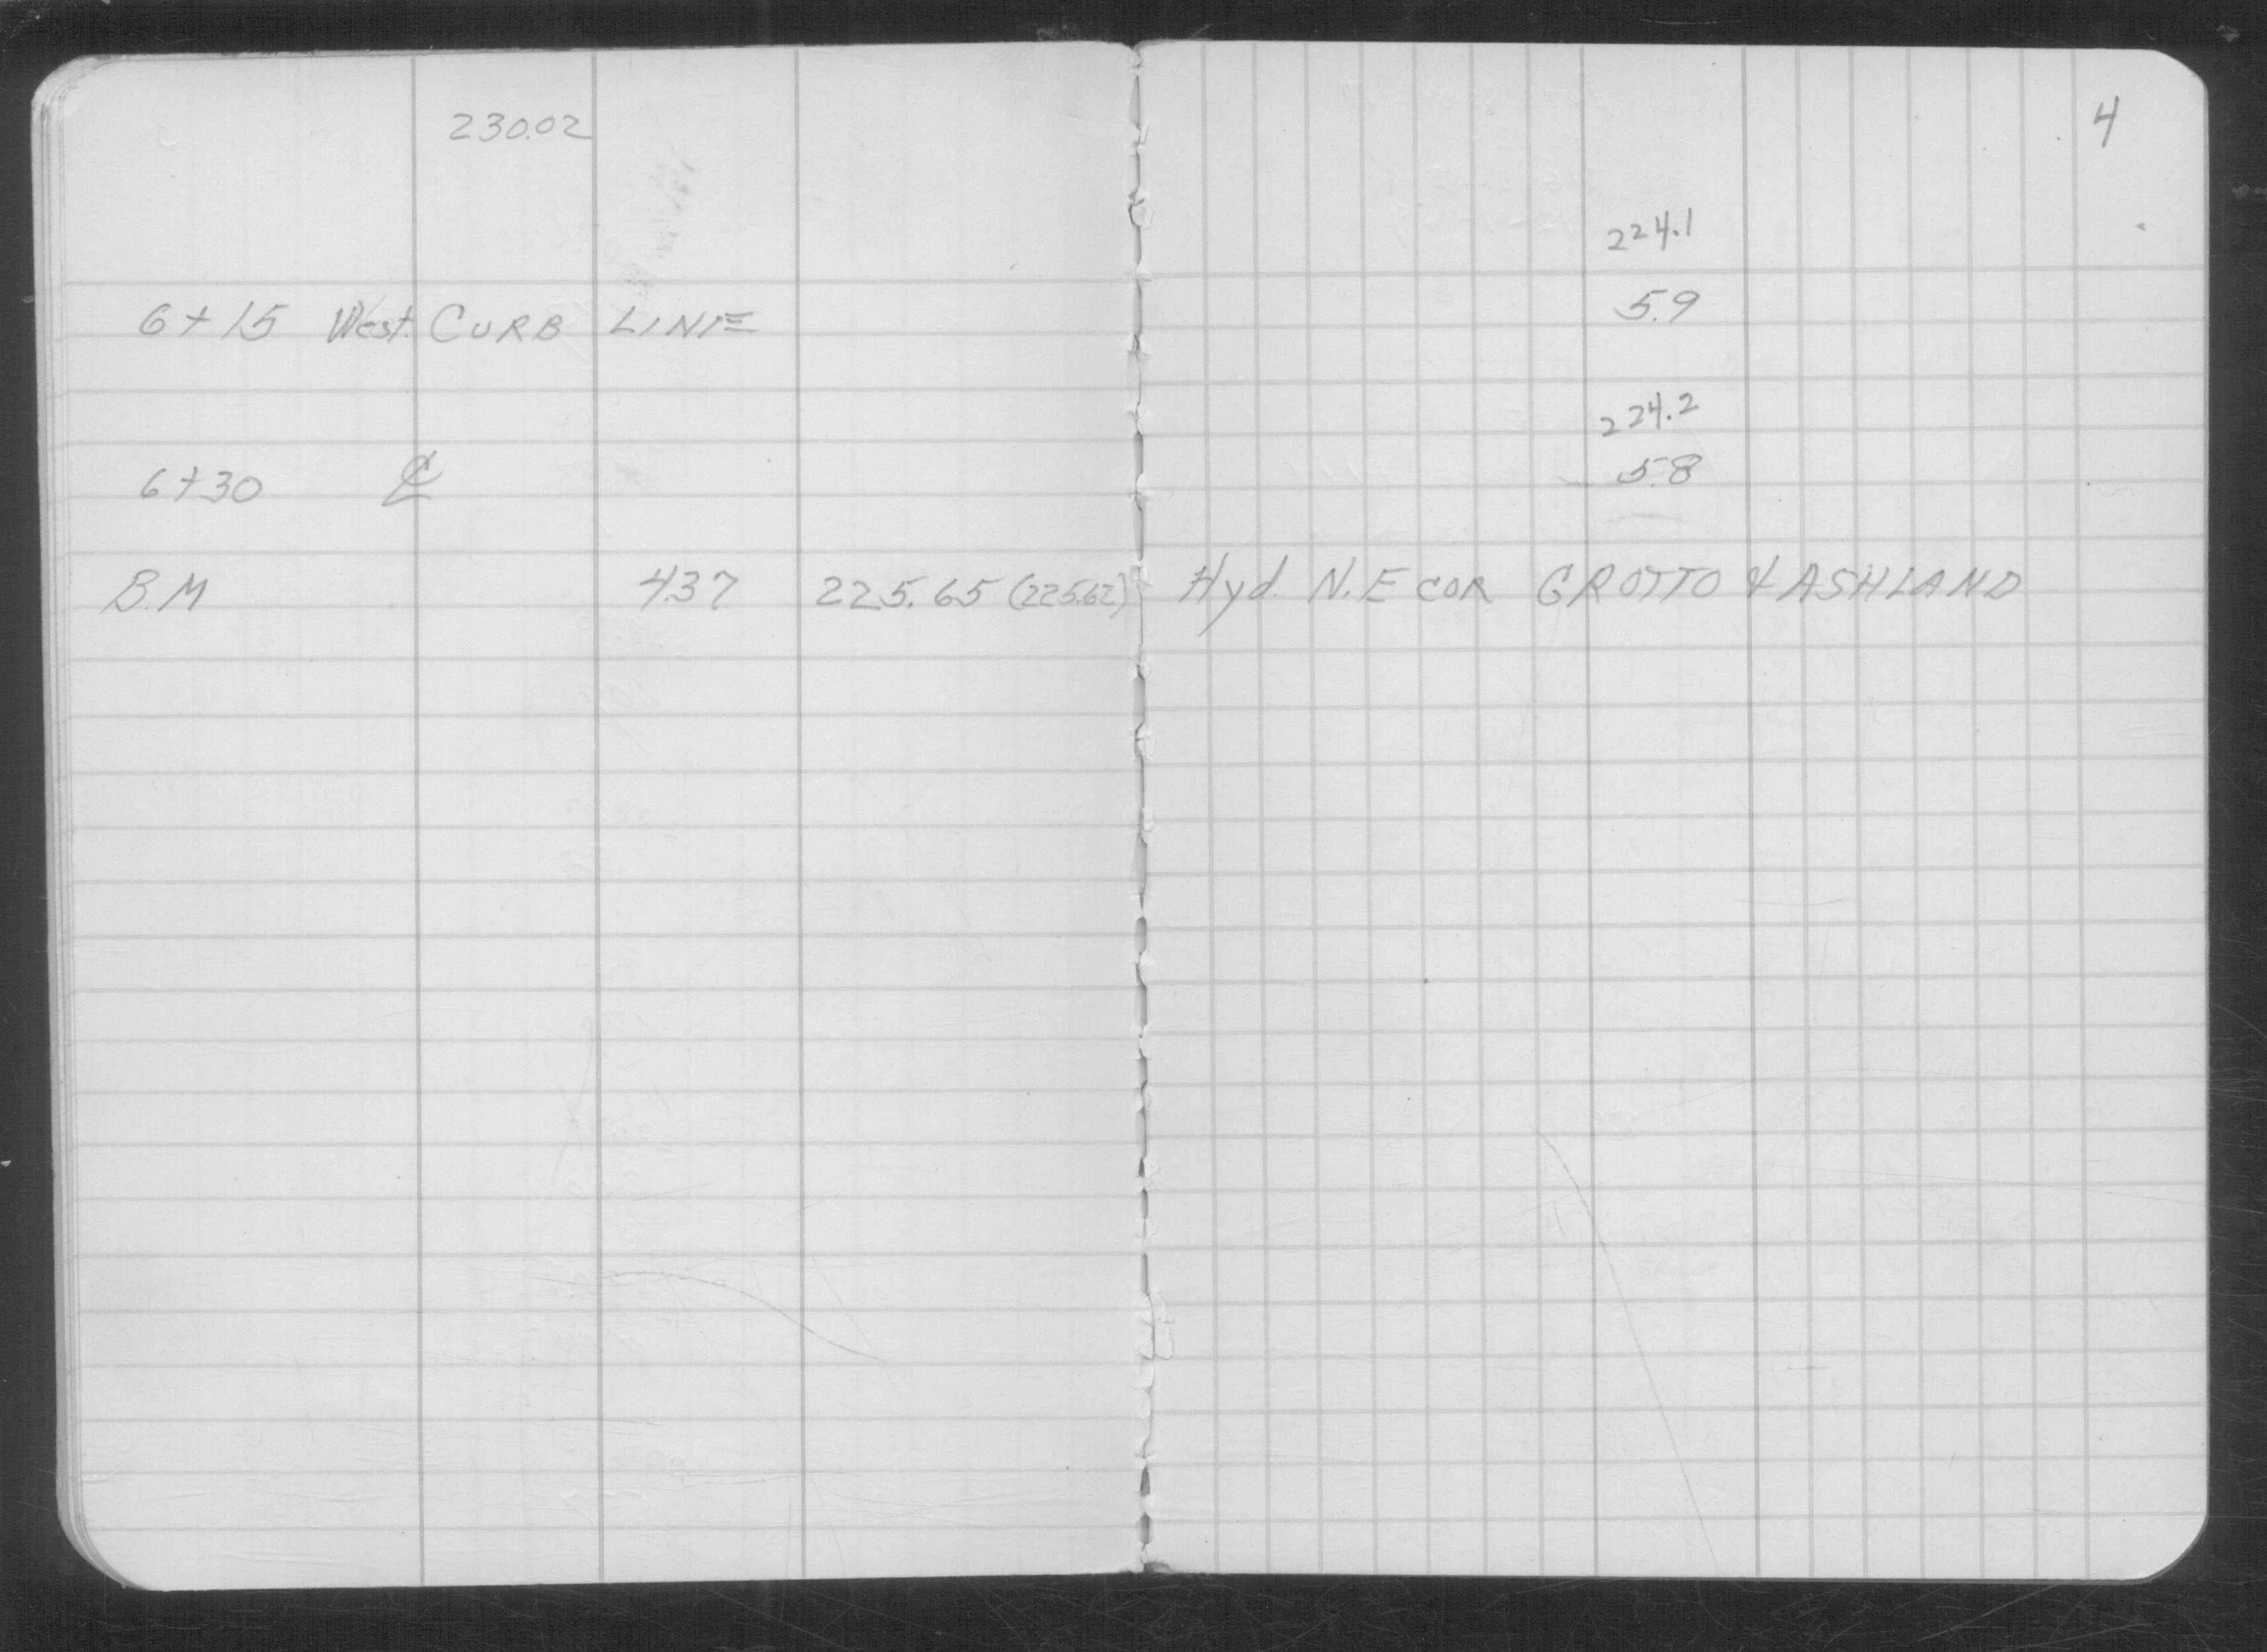 230.02
4
224.1
6+15 West. CURB LINE 5.9
224.2
6+30 ℄ 5.8
B.M 4.37 225.65 (225.62) Hyd. N.E COR GROTTO & ASHLAND